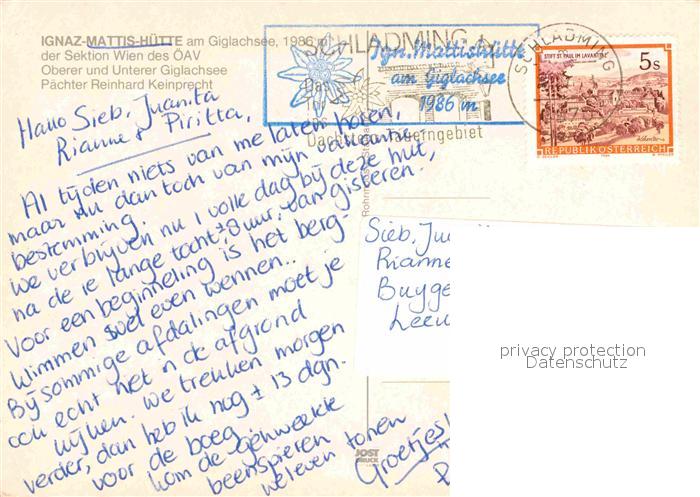 IGNAZ-MATTIS-HÜTTE am Giglachsee, 1986 m
der Sektion Wien des ÖAV
Oberer und Unterer Giglachsee
Pächter Reinhard Keinprecht
SCHLADMING
Ign. Mattishütte
am Giglachsee
1986 m
Dachstein-Tauerngebiet
SCHLADMING
STIFT ST. PAUL IM LAVANTTAL
5s
REPUBLIK ÖSTERREICH
Hallo Sieb, Juanita
Rianne & Piritta,
Al tijden niets van me laten horen,
maar nu dan toch van mijn vakantie
bestemming.
We verblijven nu 1 volle dag bij deze hut,
na de 1e lange tocht ± 8 uur, van gisteren.
Voor een beginneling is het berg-
klimmen wel even wennen..
Bij sommige afdalingen moet je
ook echt niet n de afgrond
kijken. We trekken morgen
verder, dan heb ik nog ± 13 dgn.
voor de boeg.
kom de geheelde
beenspieren
wel even tonen
Groetjes!
Sieb, Jua
Rianne
Buyge
Leeu
privacy protection
Datenschutz
JOST